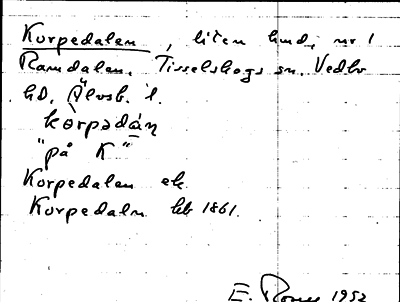 Korpedalen, liten lund, nr 1
Ramdalen, Tisselskogs sn. Vedbo
hd, Älvsb. l.
kårpədàn
"på K"
Korpedalen ek
Korpedaln kb 1861.
E. 1952